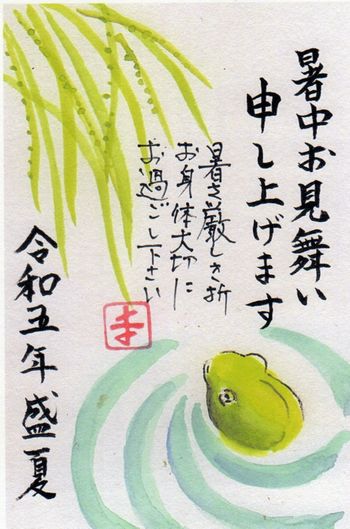 暑中お見舞い
申し上げます
暑さ厳しき折
お身体大切に
お過ごし下さい
令和五年盛夏